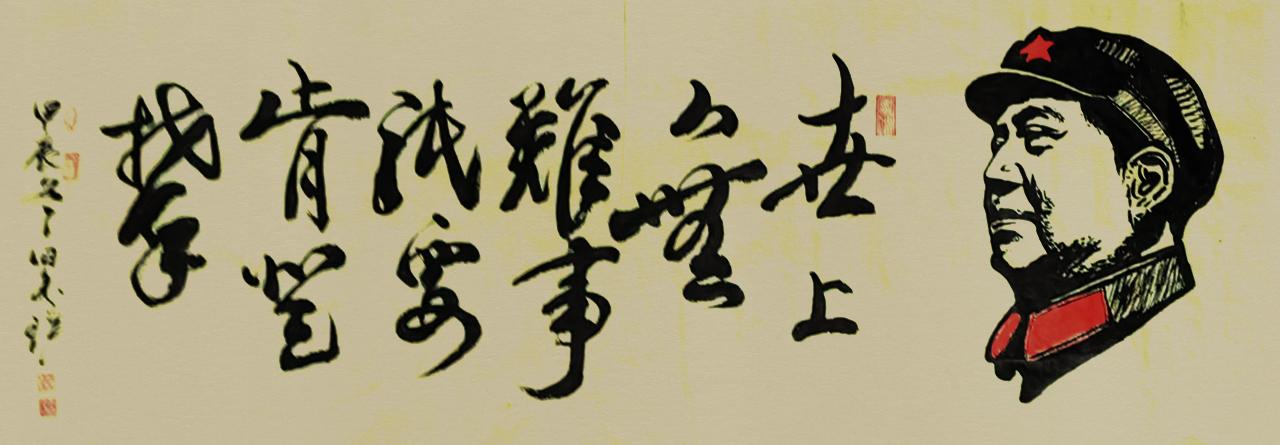 世上
無
難事
祇要
肯登
攀
甲辰